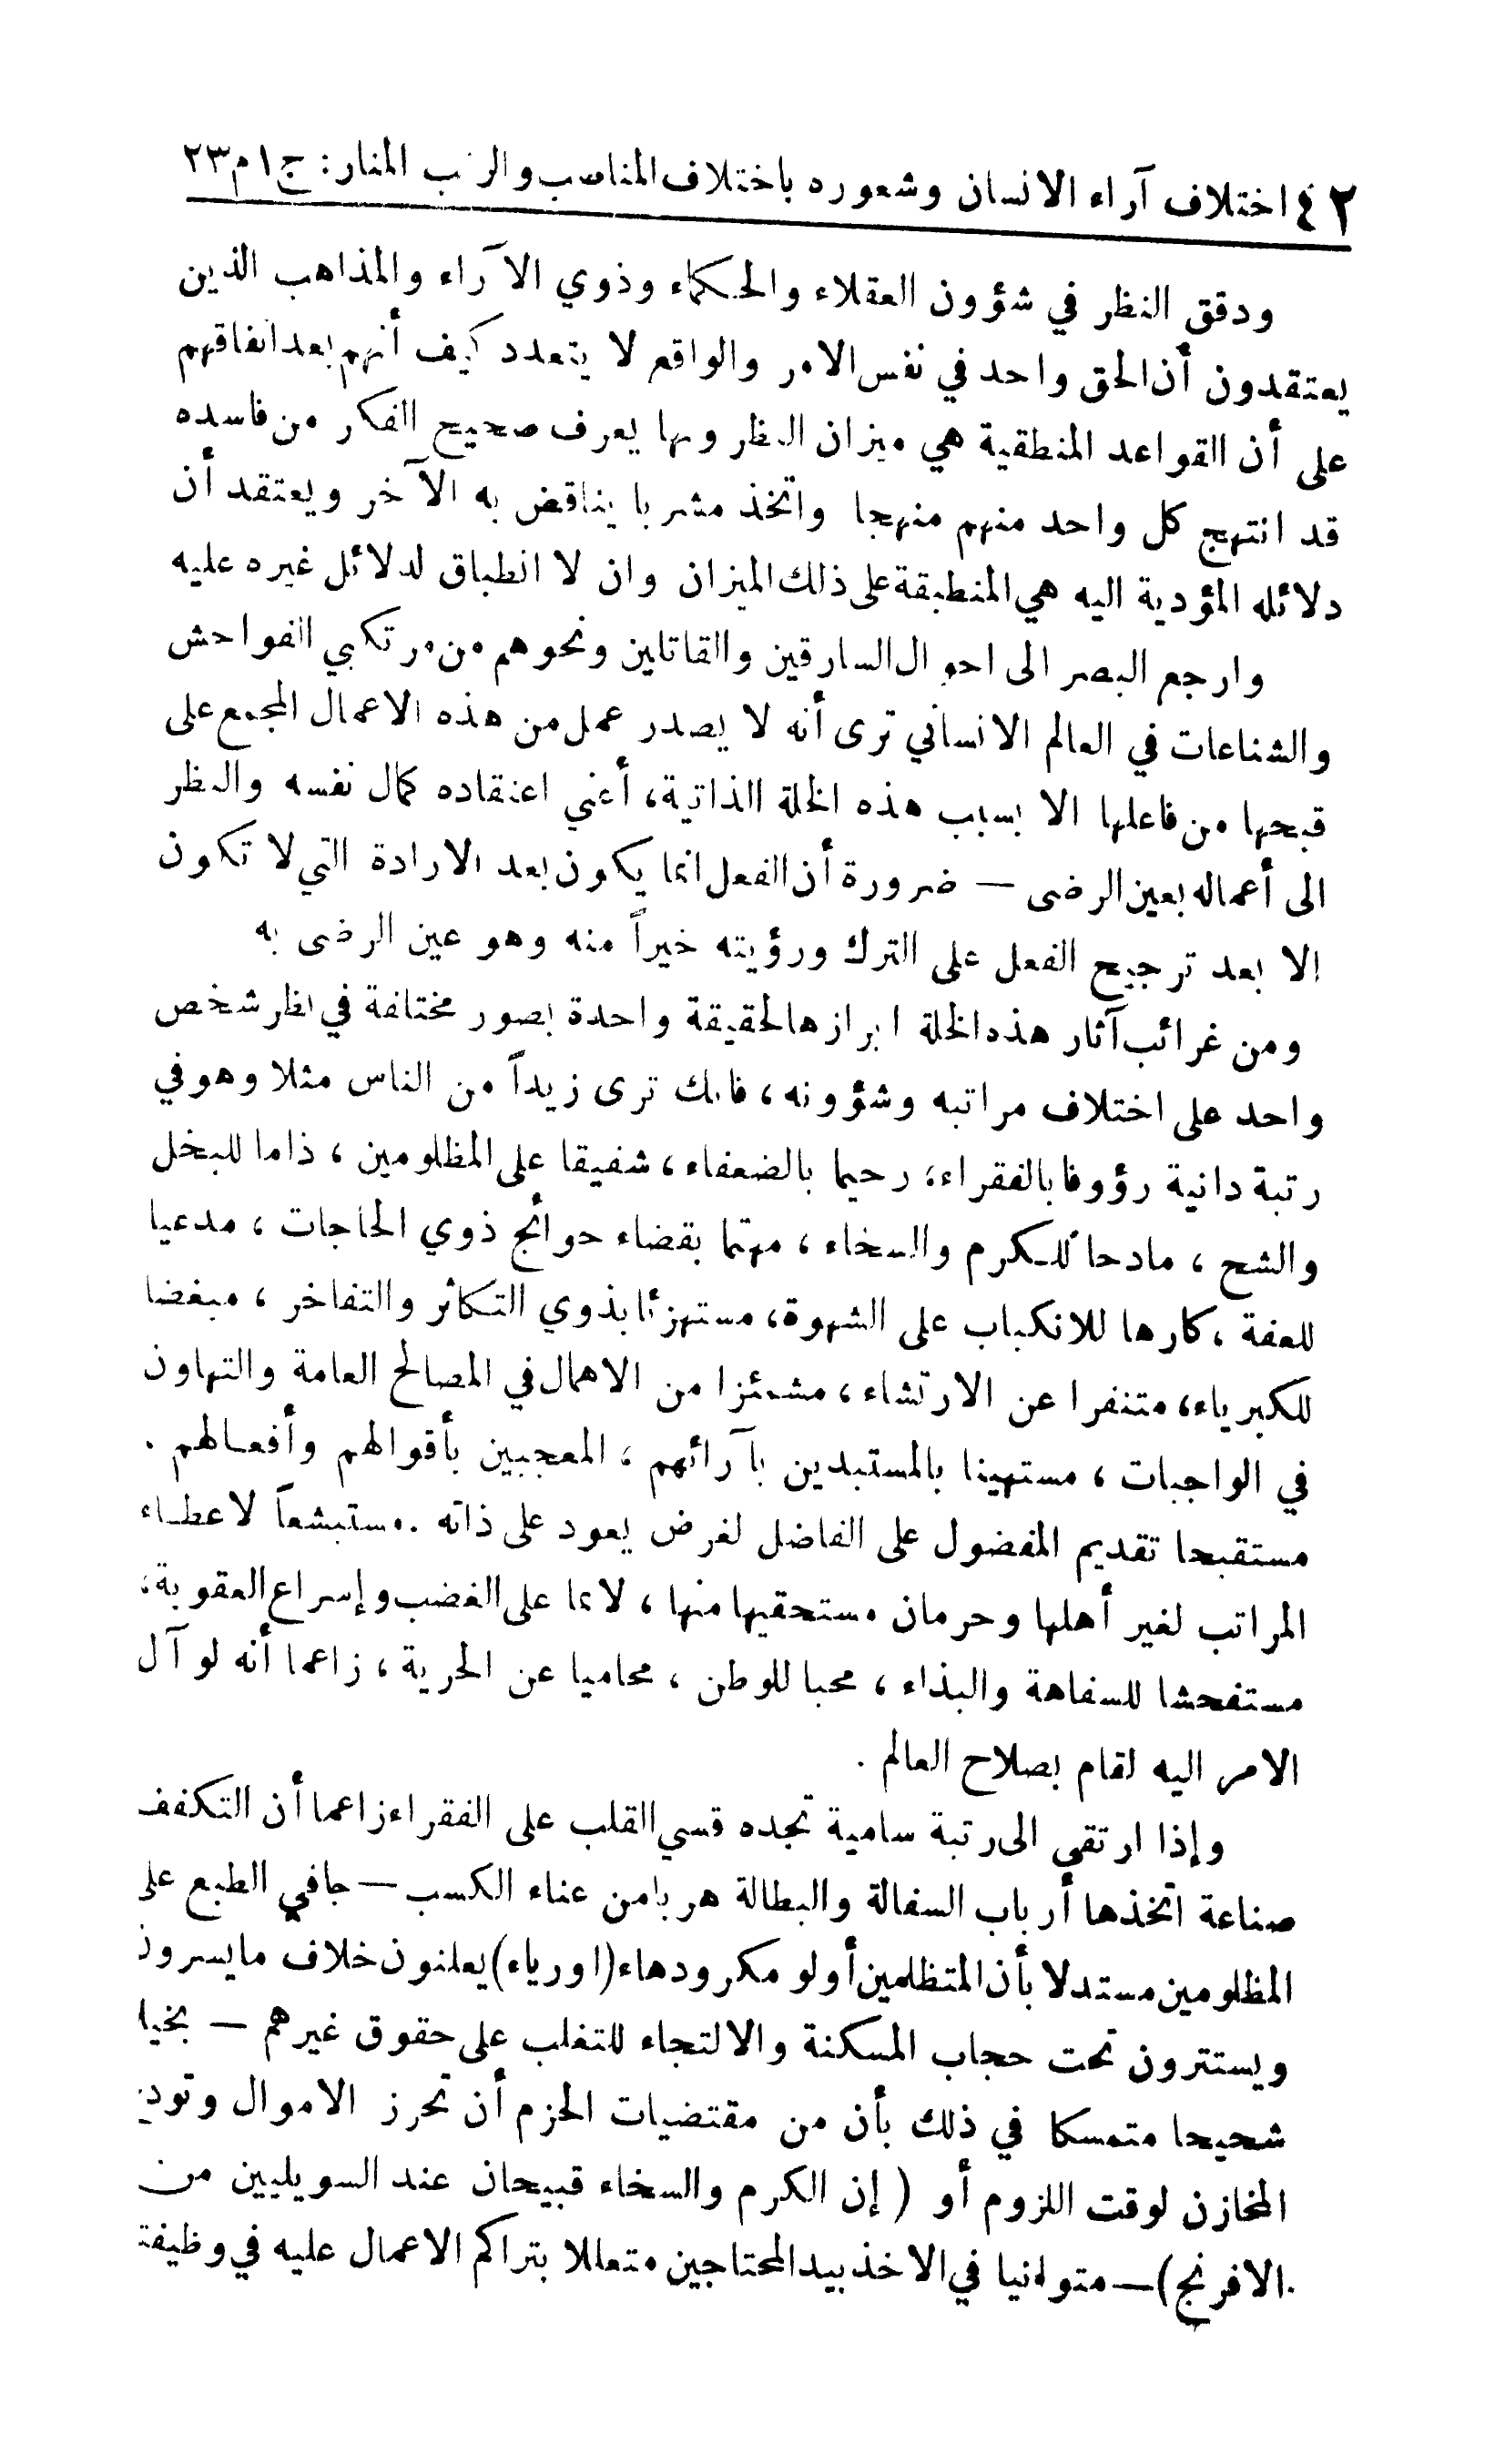 ٤٢ اختلاف آراء الانسان وشعوره باختلاف المناصب والرتب المنار: ج١م٢٣
ودقق النظر في شؤون العقلاء والحكماء وذوي الآراء والمذاهب الذين
يعتقدون أن الحق واحد في نفس الامر والواقع لا يتعدد كيف أنهم بعد اتفاقهم
على أن القواعد المنطقية هي ميزان النظر وبها يعرف صحيح الفكر من فاسده
قد انتهج كل واحد منهم منهجا واتخذ مشربا يناقض به الآخر ويعتقد أن
دلائله المؤدية اليه هي المنطبقة على ذلك الميزان وان لا انطباق لدلائل غيره عليه
وارجع البصر الى احوال السارقين والقاتلين ونحوهم من مرتكبي الفواحش
والشناعات في العالم الانساني ترى أنه لا يصدر عمل من هذه الاعمال المجمع على
قبحها من فاعلها الا بسبب هذه الخلة الذاتية، أعني اعتقاده كمال نفسه والنظر
الى أعماله بعين الرضى — ضرورة أن الفعل انما يكون بعد الارادة التي لا تكون
الا بعد ترجيح الفعل على الترك ورؤيته خيراً منه وهو عين الرضى به
ومن غرائب آثار هذه الخلة ابرازها لحقيقة واحدة بصور مختلفة في نظر شخص
واحد على اختلاف مراتبه وشؤونه، فانك ترى زيداً من الناس مثلا وهو في
رتبة دانية رؤوفا بالفقراء، رحيما بالضعفاء، شفيقا على المظلومين، ذاما للبخل
والشح، مادحا للكرم والسخاء، مهتما بقضاء حوائج ذوي الحاجات، مدعيا
للعفة، كارها للانكباب على الشهوة، مستهزئا بذوي التكاثر والتفاخر، مبغضا
للكبرياء، متنفرا عن الارتشاء، مشمئزا من الاهمال في المصالح العامة والتهاون
في الواجبات، مستهينا بالمستبدين بآرائهم، المعجبين بأقوالهم وأفعالهم.
مستقبحا تقديم المفضول على الفاضل لغرض يعود على ذاته. مستبشعاً لاعطاء
المراتب لغير أهلها وحرمان مستحقيها منها، لائما على الغضب وإسراع العقوبة،
مستفحشا للسفاهة والبذاء، محبا للوطن، محاميا عن الحرية، زاعما أنه لو آل
الامر اليه لقام بصلاح العالم.
وإذا ارتقى الى رتبة سامية تجده قسي القلب على الفقراء زاعما أن التكفف
صناعة اتخذها أرباب السفالة والبطالة هربا من عناء الكسب — جافي الطبع على
المظلومين مستدلا بأن المتظلمين أولو مكر ودهاء (اورياء) يعلنون خلاف ما يسرون
ويستترون تحت حجاب المسكنة والالتجاء للتغلب على حقوق غيرهم — بخيلا
شحيحا متمسكا في ذلك بأن من مقتضيات الحزم أن تحرز الاموال وتودع
المخازن لوقت اللزوم أو (إن الكرم والسخاء قبيحان عند السويليين من
الافرنج) — متوانيا في الاخذ بيد المحتاجين متعللا بتراكم الاعمال عليه في وظيفته